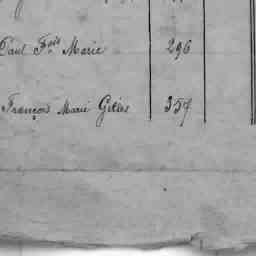 Paul Fois Marie 296
François Marie Gilles 357